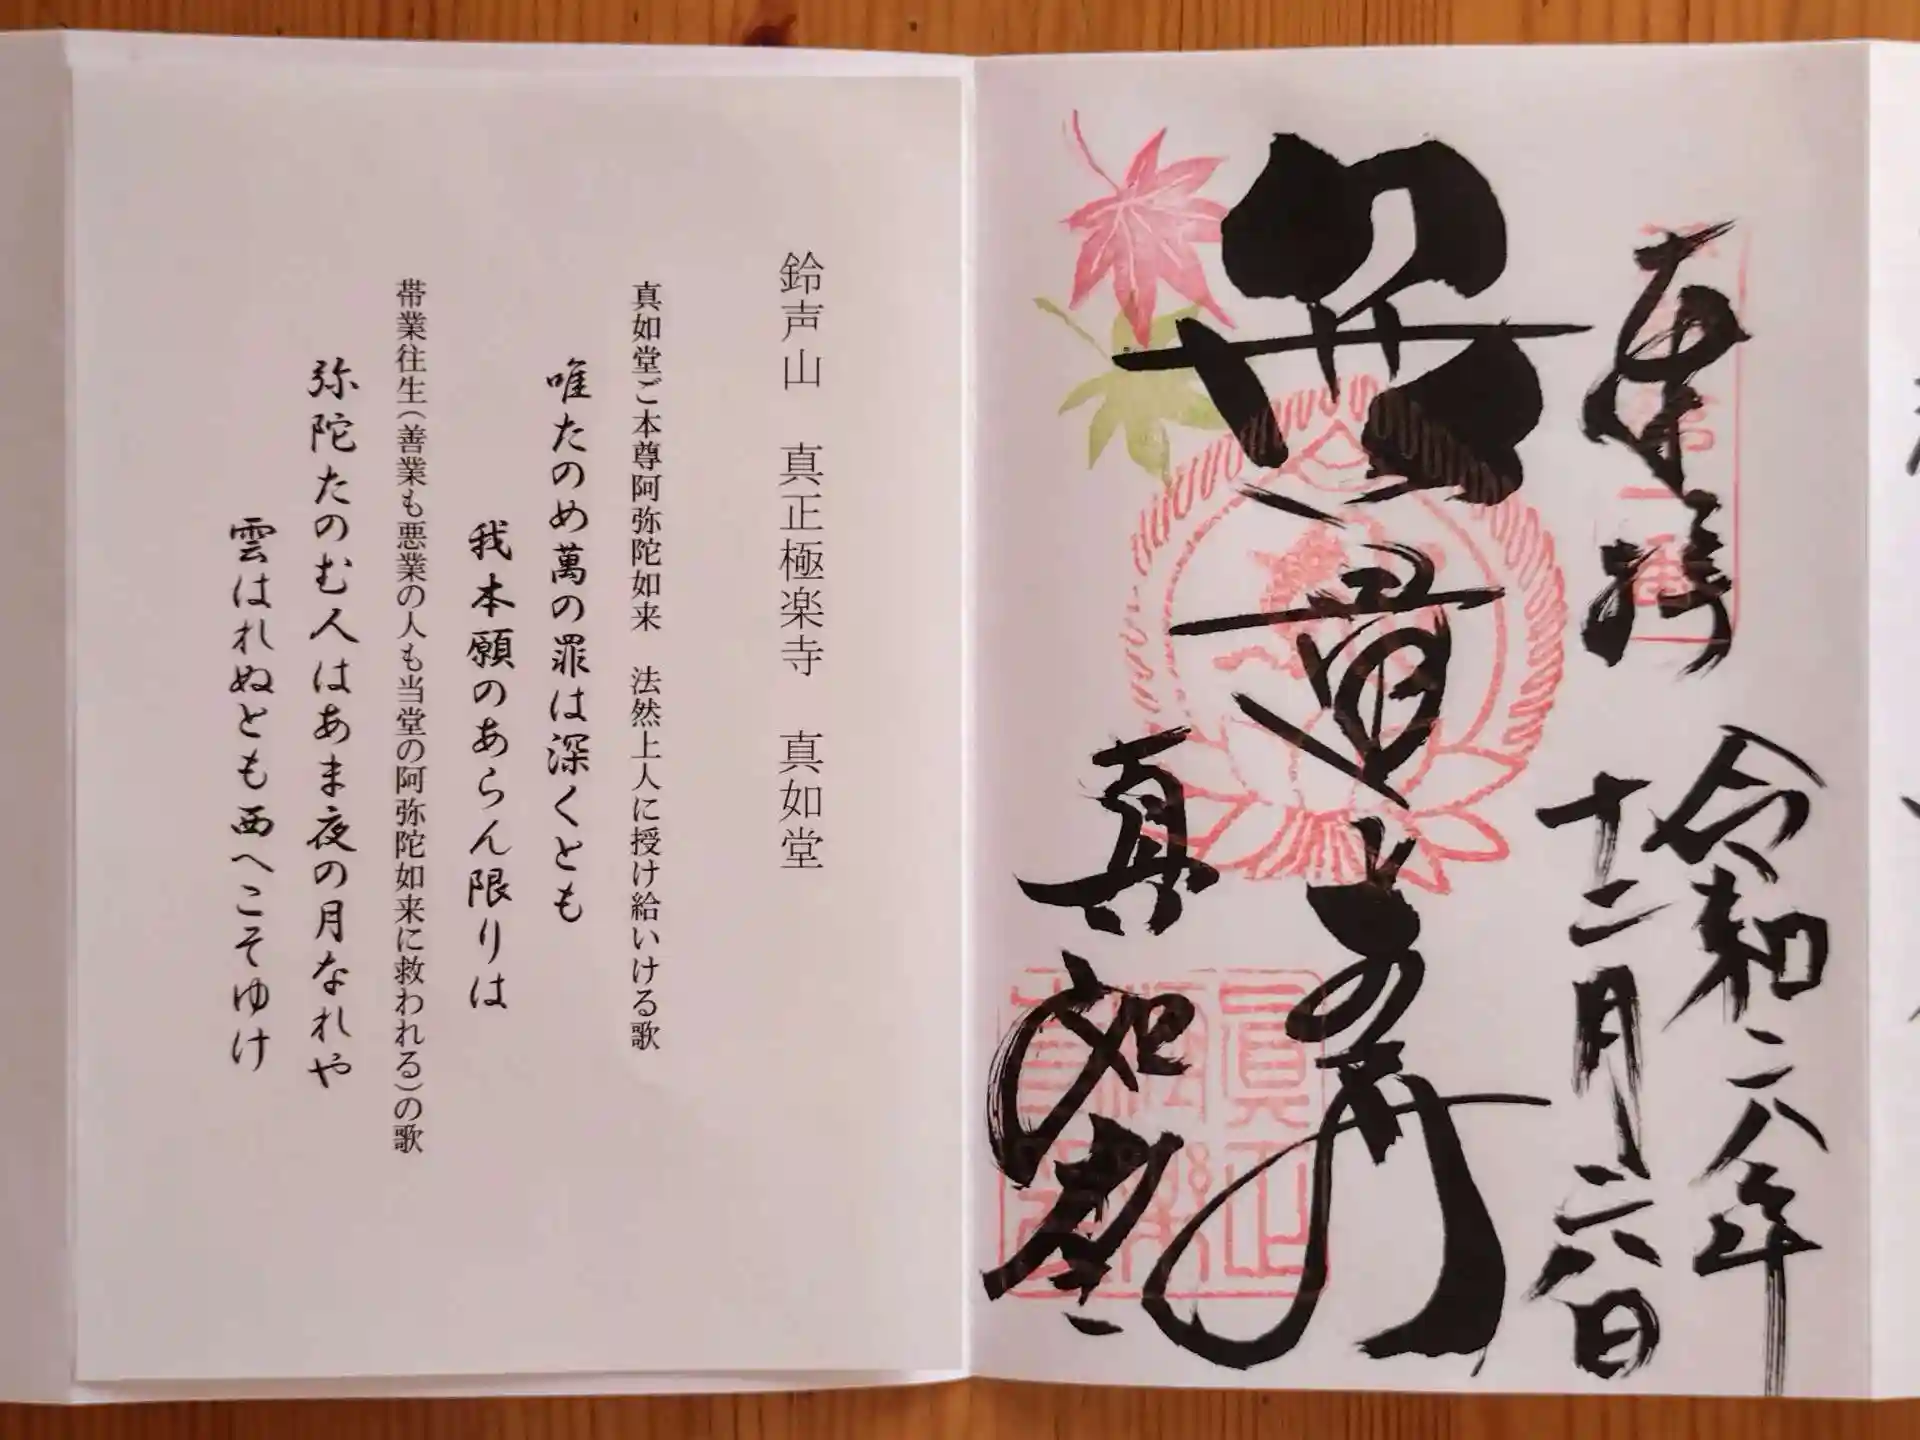 奉拝
令和六年
十二月六日
無量寿
真如堂
鈴声山　真正極楽寺　真如堂
真如堂ご本尊阿弥陀如来　法然上人に授け給いける歌
唯たのめ萬の罪は深くとも
我本願のあらん限りは
帯業往生（善業も悪業の人も当堂の阿弥陀如来に救われる）の歌
弥陀たのむ人はあま夜の月なれや
雲はれぬとも西へこそゆけ